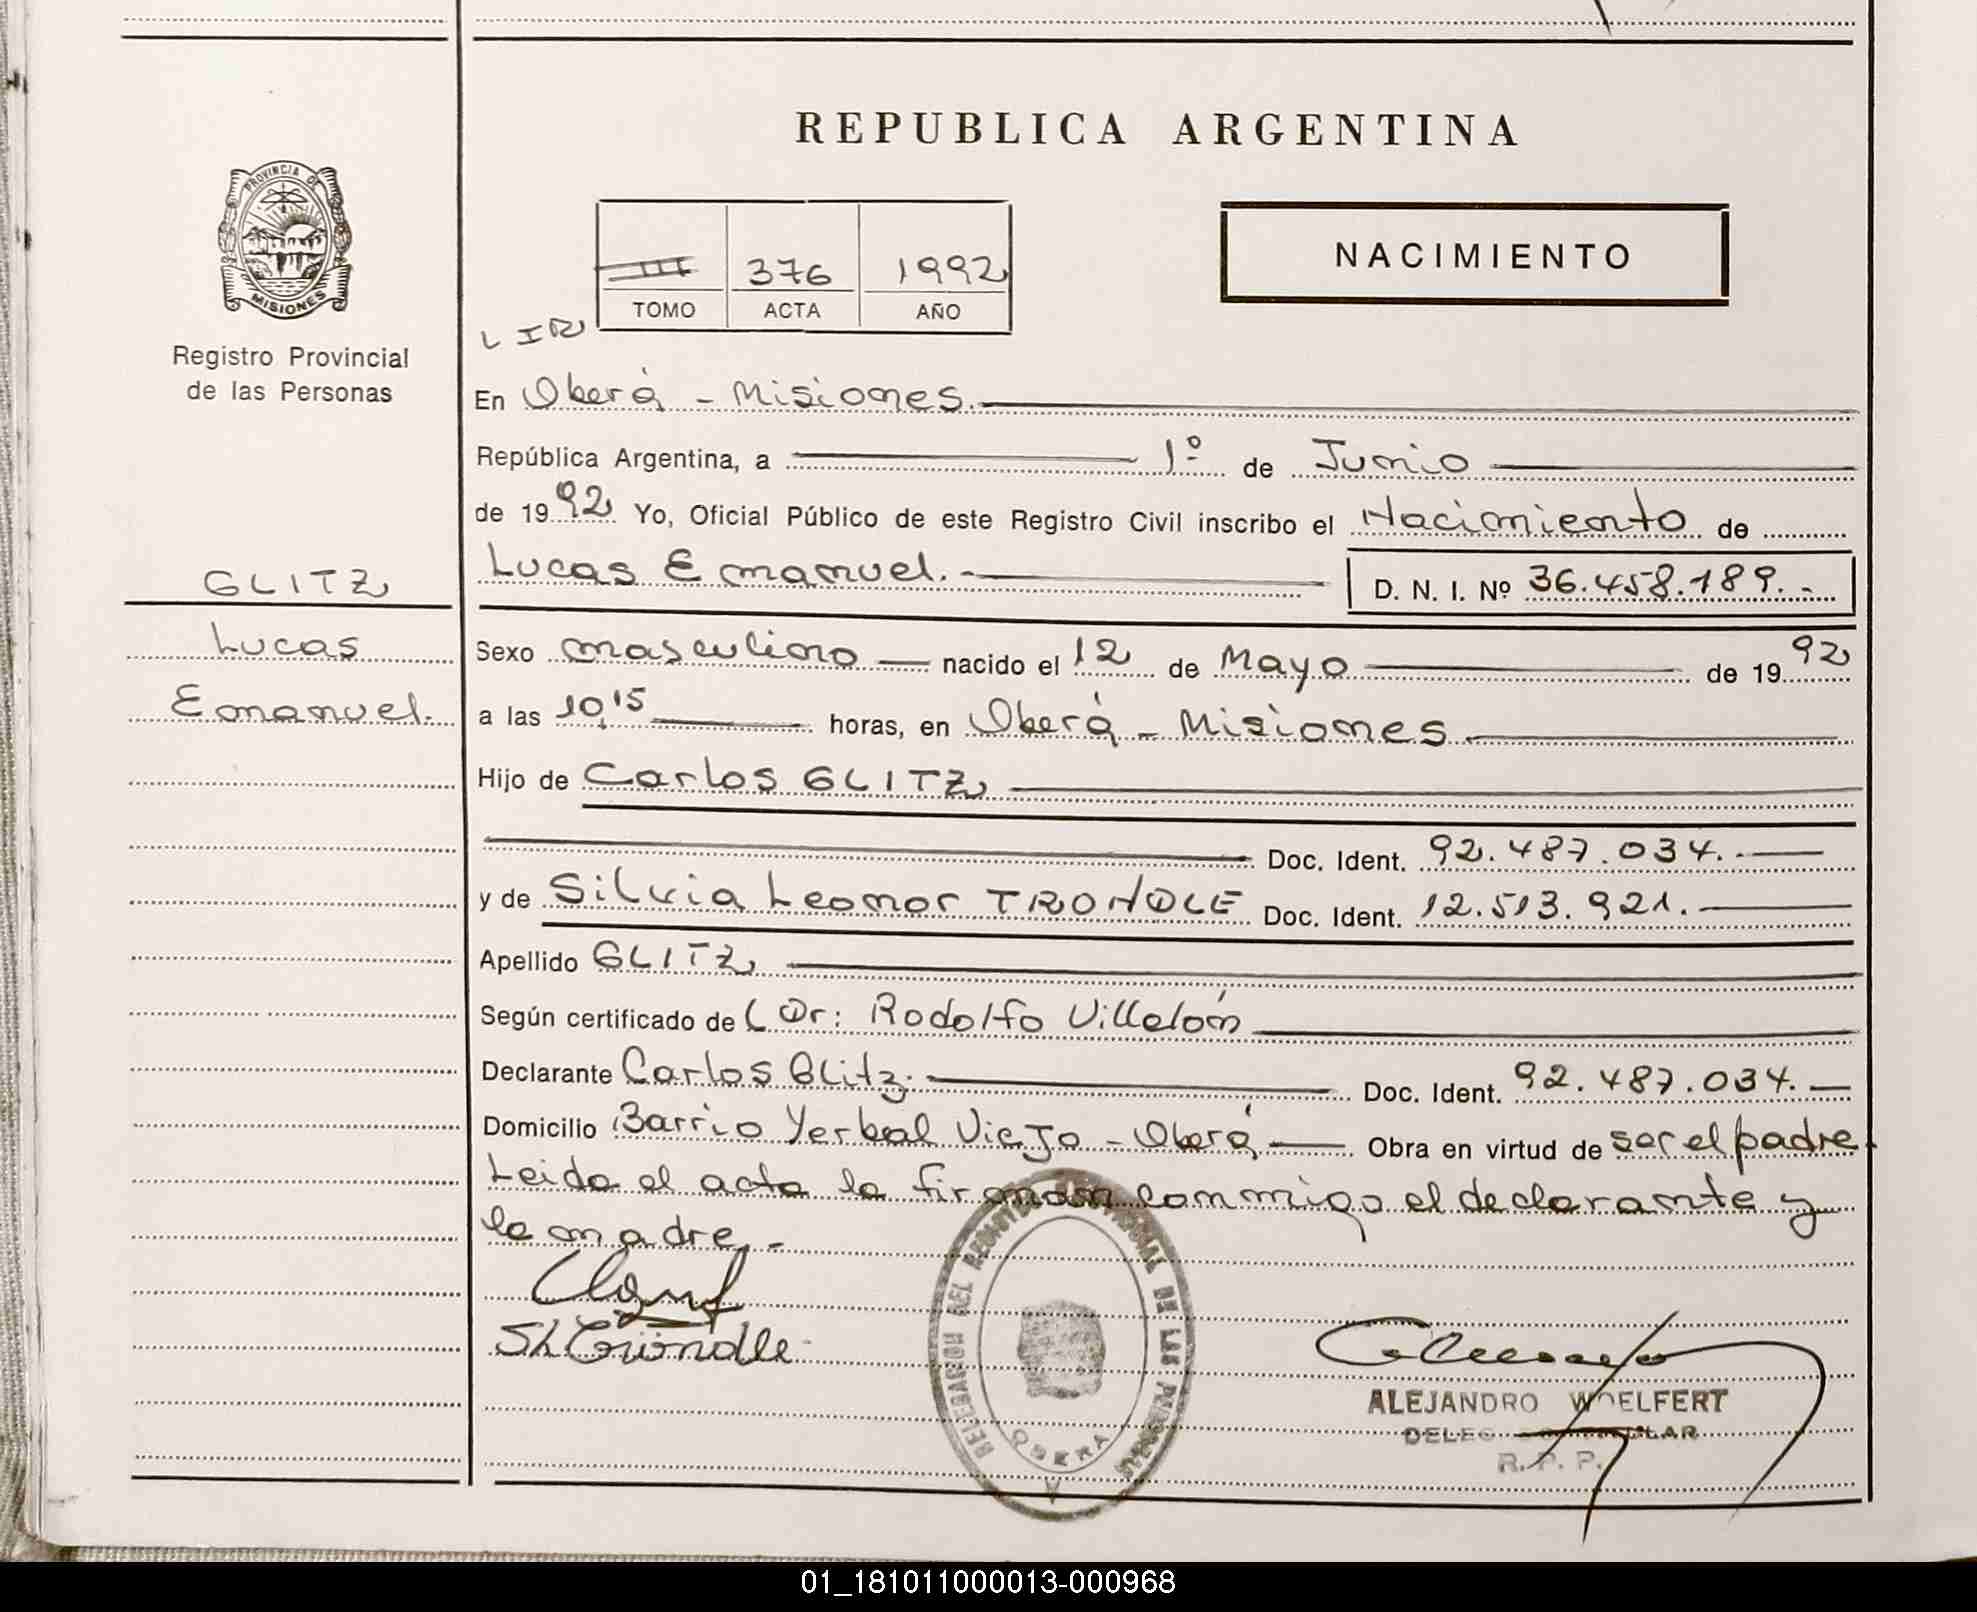 REPUBLICA ARGENTINA
PROVINCIA DE
MISIONES
Registro Provincial
de las Personas
NACIMIENTO
III 376 1992
TOMO ACTA AÑO
En Oberá - Misiones.
República Argentina, a 1º de Junio
de 1992 Yo, Oficial Público de este Registro Civil inscribo el Nacimiento de
Lucas Emanuel. D. N. I. Nº 36.458.189.-
GLITZ
Lucas
Emanuel.
Sexo masculino nacido el 12 de Mayo de 1992
a las 10,15 horas, en Oberá - Misiones
Hijo de Carlos GLITZ
Doc. Ident. 92.487.034.
y de Silvia Leonor TRONDLE Doc. Ident. 12.513.921.
Apellido GLITZ
Según certificado de (Dr: Rodolfo Villalón
Declarante Carlos Glitz. Doc. Ident. 92.487.034.
Domicilio Barrio Yerbal Viejo - Oberá Obra en virtud de ser el padre
Leida el acta la firman conmigo el declarante y
la madre.-
DELEGACION DEL REGISTRO PROVINCIAL DE LAS PERSONAS
OBERA
ALEJANDRO WOELFERT
R. P. P.
01_181011000013-000968